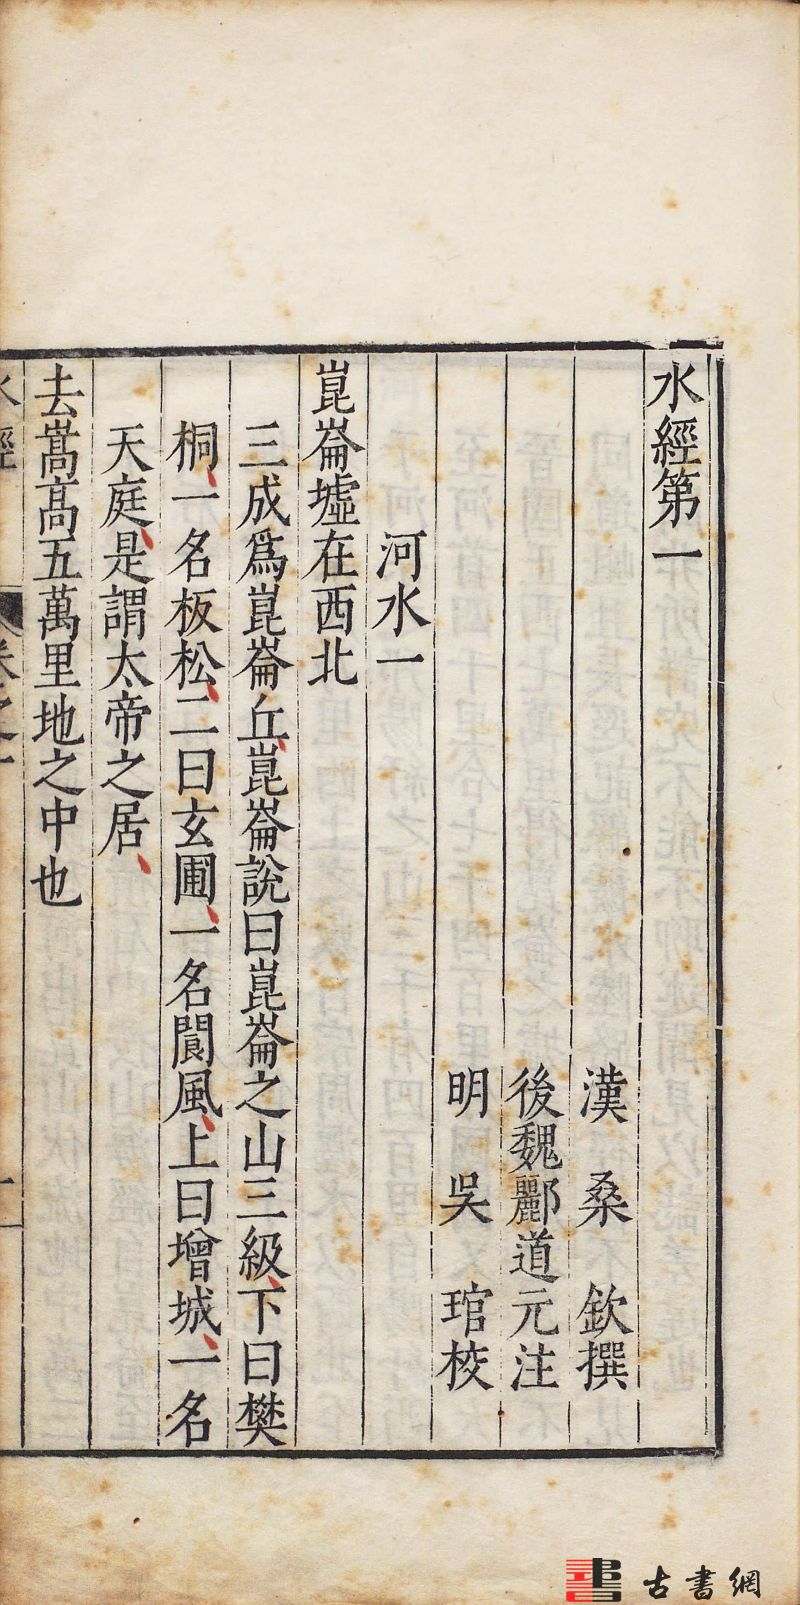 水經第一
漢 桑 欽撰
後魏酈道元注
明 吳 琯校
河水一
崑崙墟在西北
三成爲崑崙丘崑崙說曰崑崙之山三級下曰樊
桐一名板松二曰玄圃一名閬風上曰增城一名
天庭是謂太帝之居
去嵩高五萬里地之中也
水經 卷之一 一
古書網